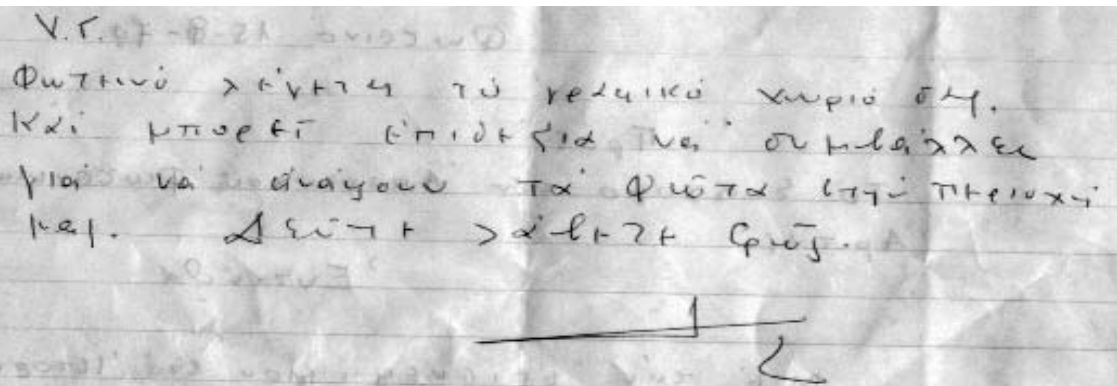 Υ.Γ.
Φωτεινό λέγεται τό γραφικό χωριό σας.
Καί μπορεί επιδέξια νά συμβάλλει
γιά νά ανάψουν τά φώτα στήν περιοχή
μας. Δεύτε λάβετε φώς.